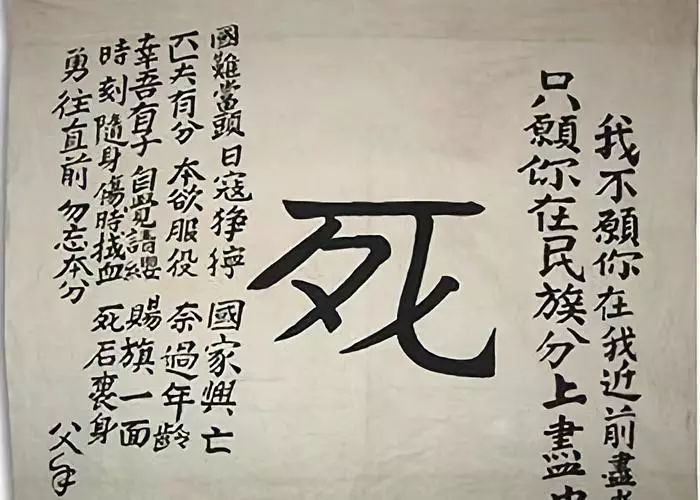 我不願你在我近前盡
只願你在民族分上盡
死
國難當頭日寇猙獰 國家興亡
匹夫有分 本欲服役 奈過年齡
幸吾有子 自覺請纓 賜旗一面
時刻隨身傷時拭血 死后裹身
勇往直前 勿忘本分 父手